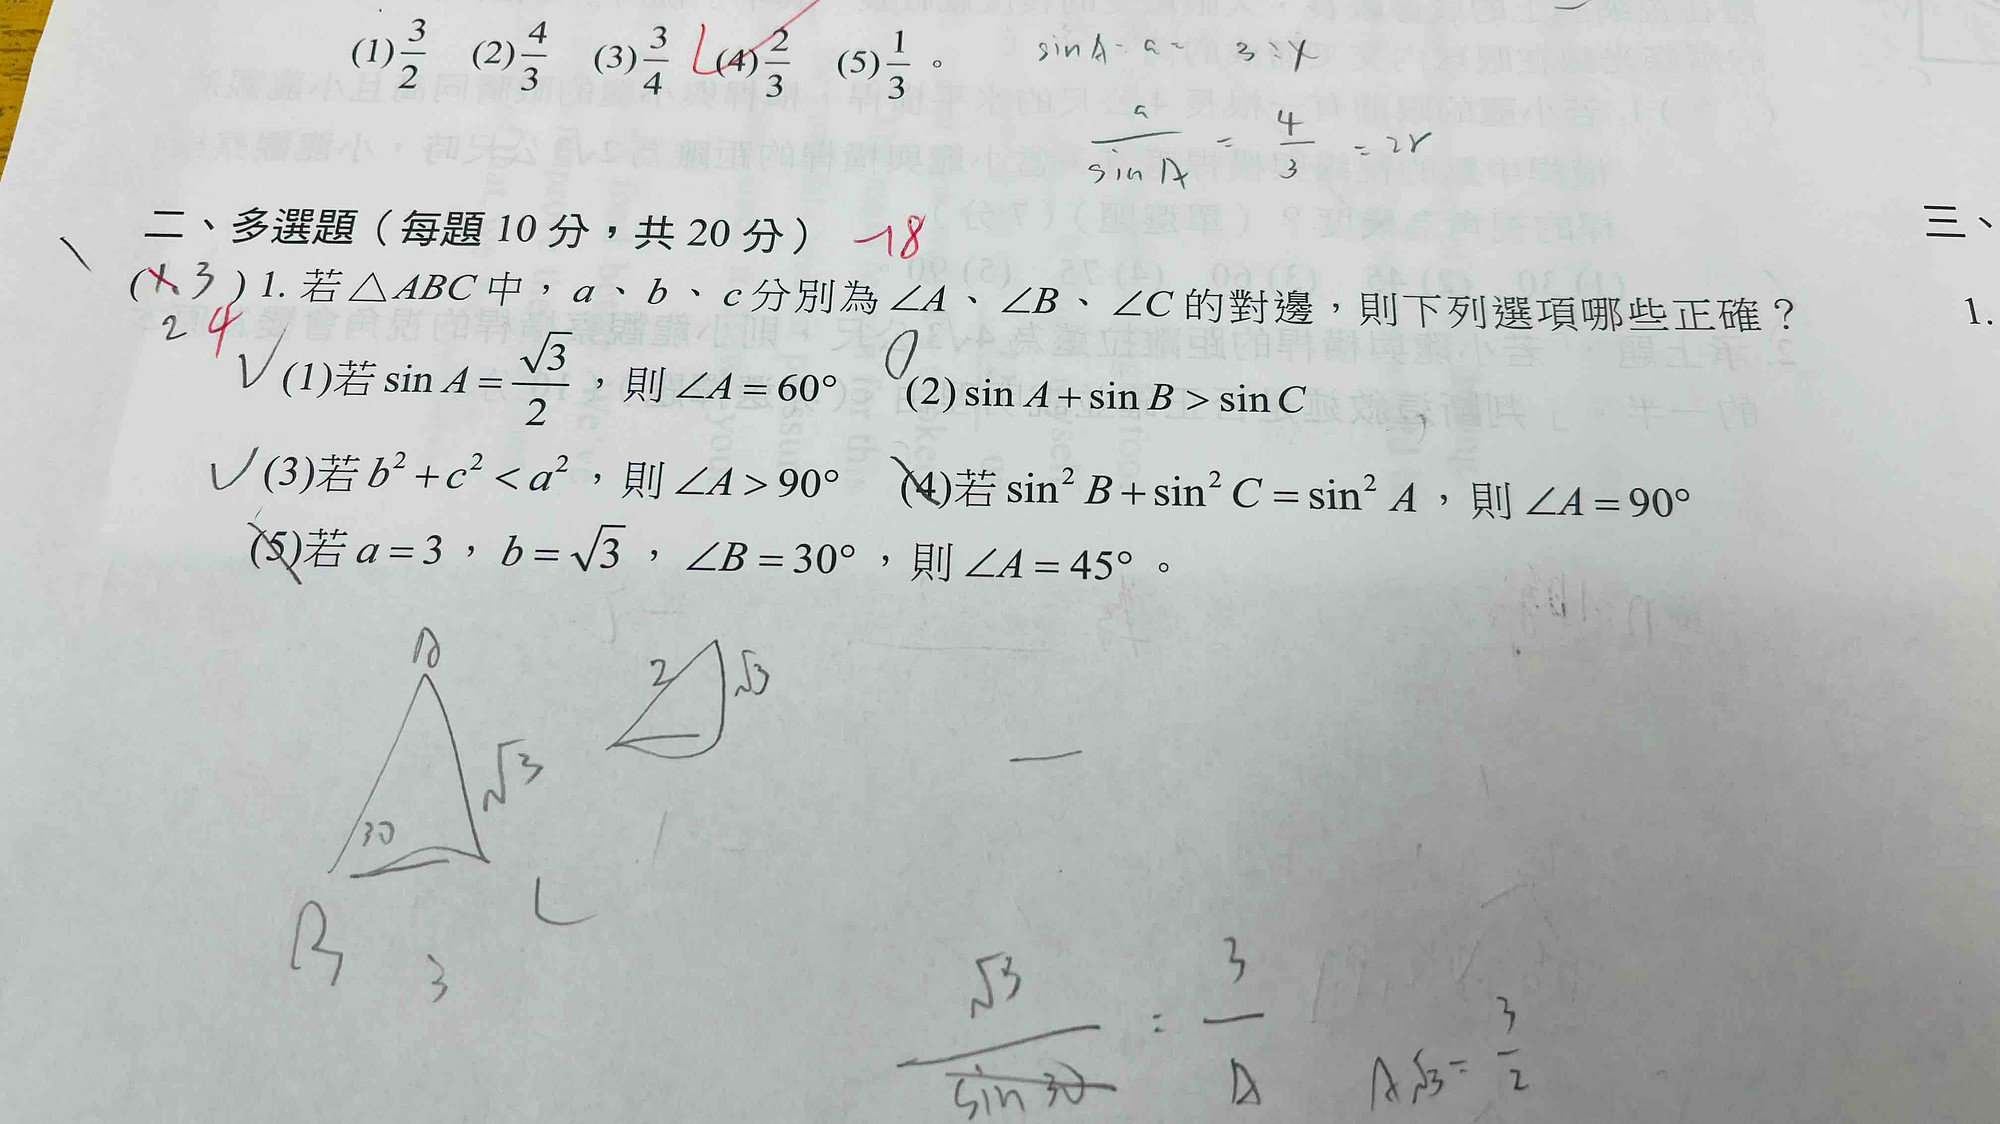 (1) 3/2 (2) 4/3 (3) 3/4 (4) 2/3 (5) 1/3 。
sin A = a = 3 : 4
a/sin A = 4/3 = 2r
二、多選題（每題 10 分，共 20 分） -18
三、
(1. 3 ) 1. 若 △ABC 中，a、b、c 分別為 ∠A、∠B、∠C 的對邊，則下列選項哪些正確？
1.
2 4
(1)若 sin A = √3/2，則 ∠A = 60° (2) sin A + sin B > sin C
(3)若 b² + c² < a²，則 ∠A > 90° (4)若 sin² B + sin² C = sin² A，則 ∠A = 90°
(5)若 a = 3，b = √3，∠B = 30°，則 ∠A = 45°。
A
2 √3
√3
30
B 3
√3/sin 30 = 3/A
A√3 = 3/2